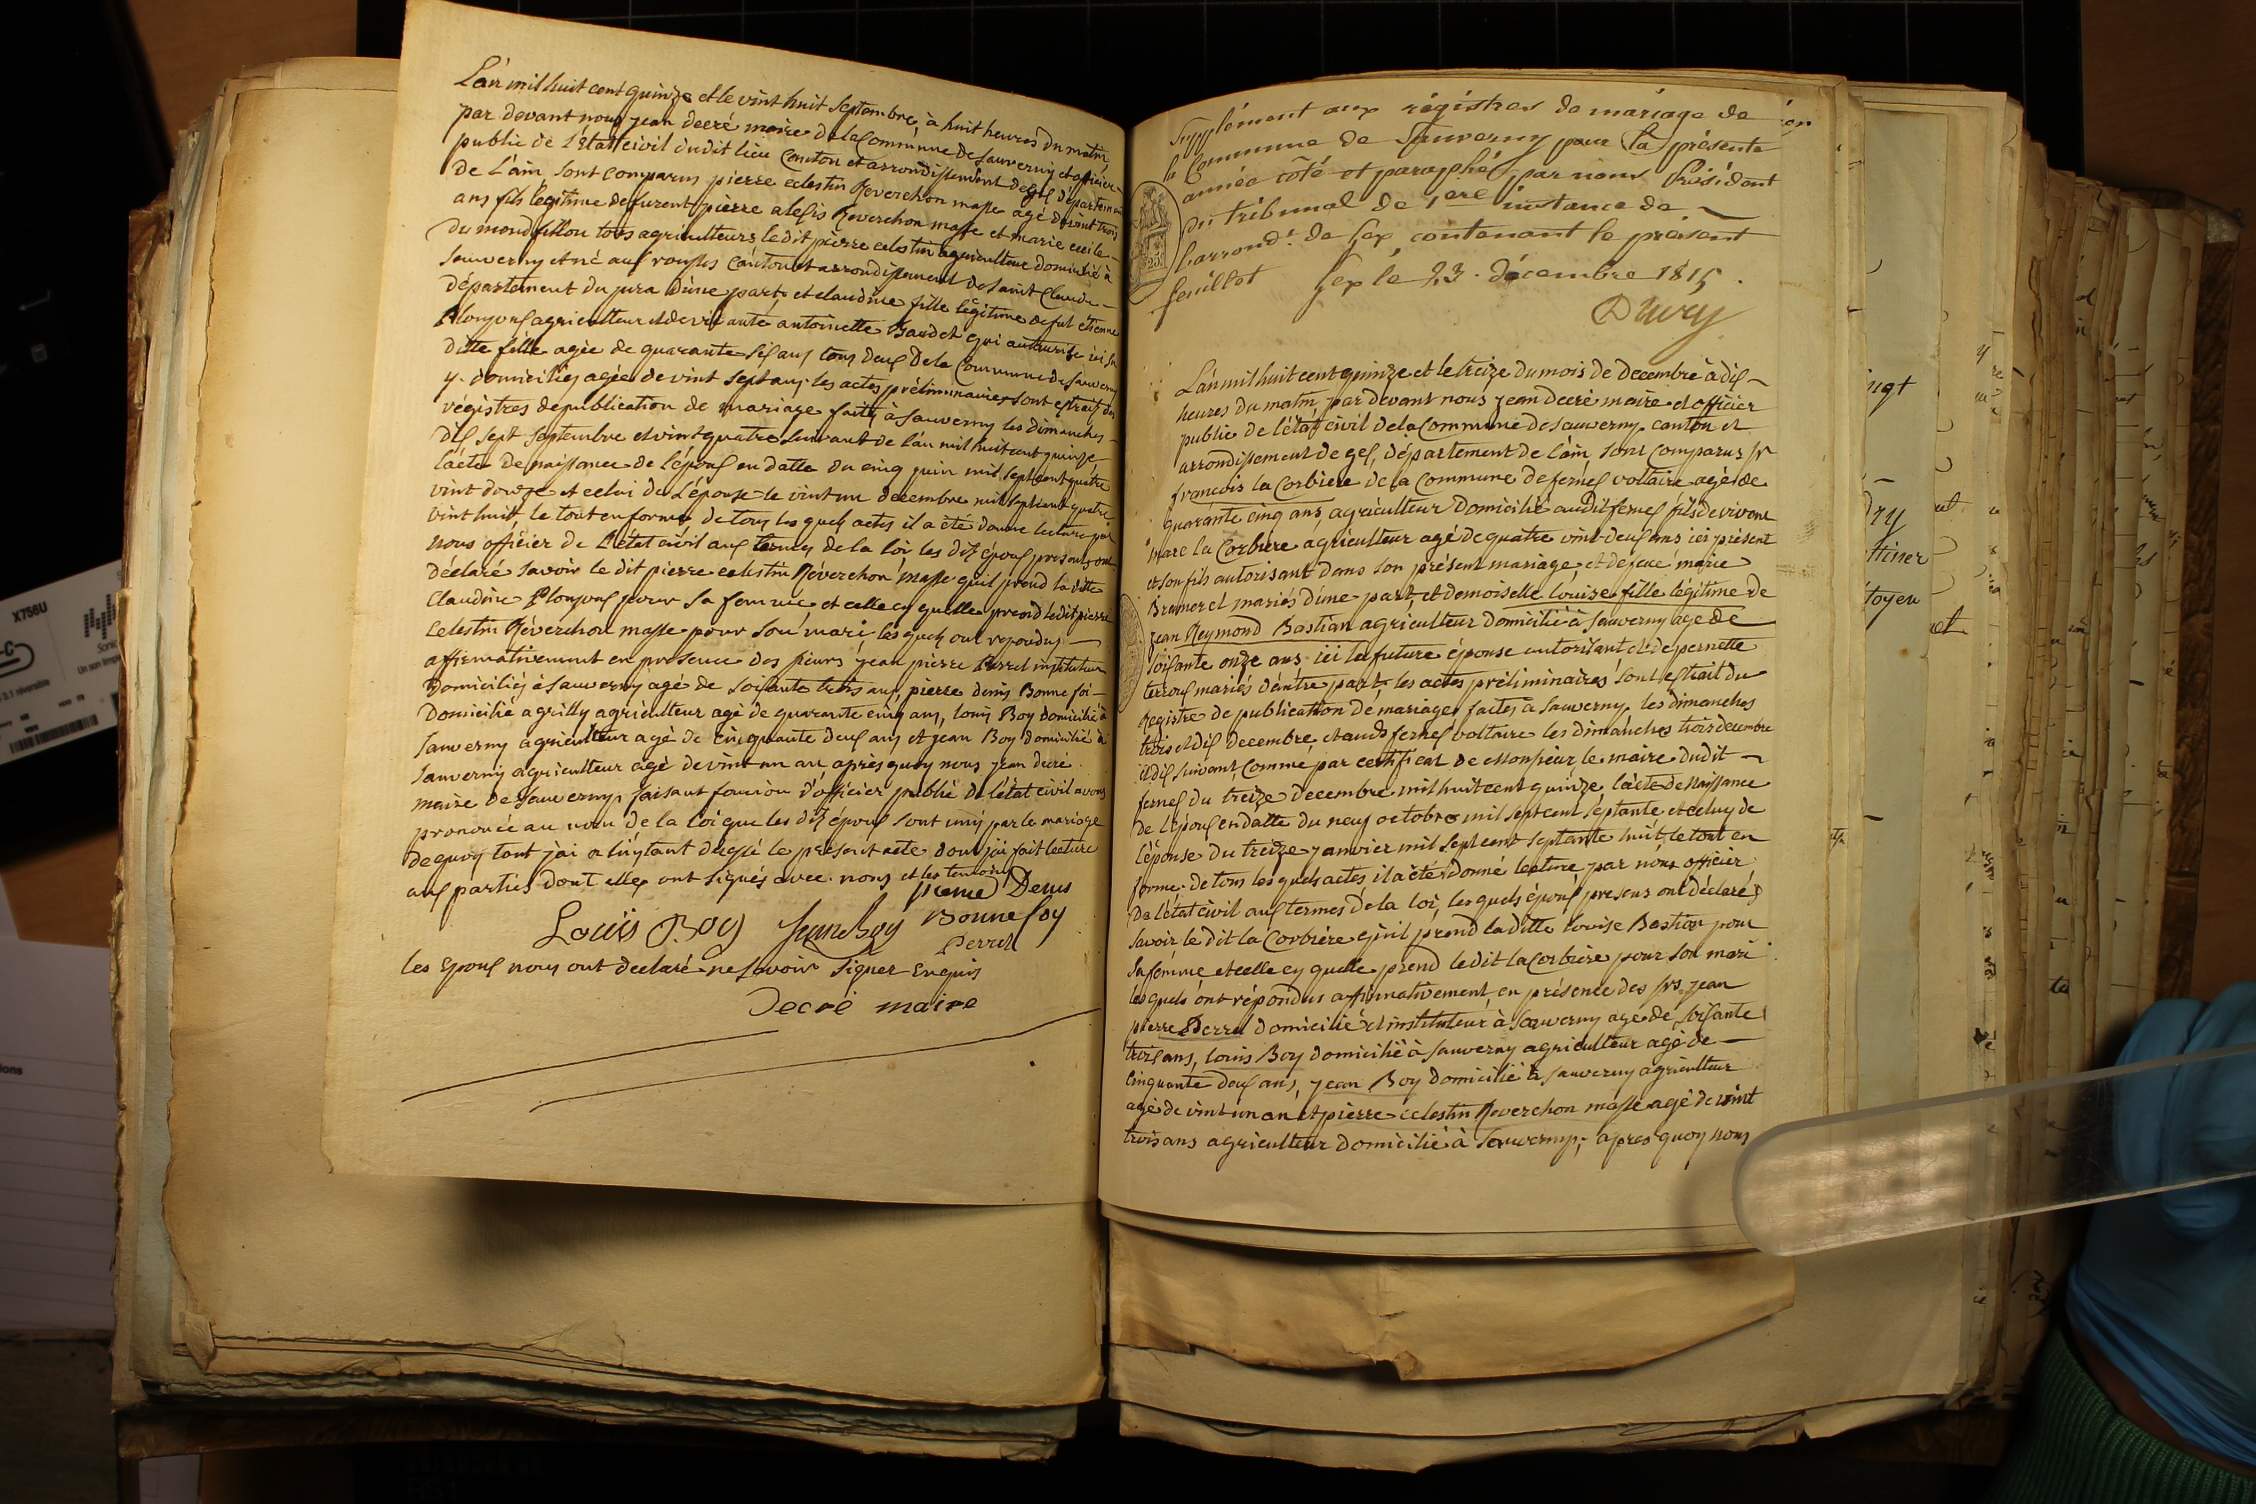 L'an mil huit cent quinze et le vint huit Septembre, à huit heures du matin
par devant nous jean decré maire de la Commune de Sauverny et officier
public de l'état civil dudit lieu Canton et arrondissement de gex département
de L'ain sont comparus pierre celestin Reverchon masse agé de vint trois
ans fils légitime de furent pierre alexis Reverchon masse et marie cecile
du mond fillou tous agriculteurs ledit pierre celestin agriculteur domicilié à
Sauverny et né aux rousses Canton et arrondissement de Saint Claude
département du jura d'une part, et claudine fille légitime de fut étienne
Plonjoux agriculteur et de vivante antoinette Baudet qui autorise ici sa
ditte fille agée de quarante six ans tous deux de la Commune de Sauverny
y domiciliés agée de vint sept ans. les actes préliminaires sont extrait des
régistres de publication de mariage faits à Sauverny les dimanches
dix sept Septembre et vint quatre suivant de l'an mil huit cent quinze
l'acte de naissance de l'époux en datte du cinq juin mil sept cent quatre
vint douze et celui de l'épouse le vint un decembre mil sept cent quatre
vint huit, le tout en forme, de tous les quels actes il a été donné lecture par
nous officier de l'état civil aux termes de la loi les dits époux presents ont
déclaré savoir le dit pierre celestin Réverchon masse qu'il prend la ditte
Claudine Plonjoux pour sa femme et celle cy quelle prend le dit pierre
Celestin Réverchon masse pour son mari les quels ont repondus
affirmativement en presence des sieurs jean pierre Perrel instituteur
domiciliés à Sauverny agé de soixante trois ans, pierre denis Bonnefoi
domicilié a grilly agriculteur agé de quarante cinq ans, louis Boy domicilié à
Sauverny agriculteur agé de cinquante deux ans et jean Boy domicilié à
Sauverny agriculteur agé de vint un an après quoy nous jean decré
maire de Sauverny faisant foncion d'officier public de l'état civil avons
prononcée au nom de la loi que les dits époux sont unis par le mariage
de quoy tout j'ai a l'instant dressé le présent acte dont j'ai fait lecture
aux parties dont elles ont signés avec nous et les temoins
pierre Denis
Louis Boy jean Boy Bonnefoy
Perrel
les Epoux nous ont declaré ne savoir signer Enquis
Decré maire
Supplément aux régistres de mariage de
la Commune de Sauverny pour la présente
année côté et paraphé par nous Président
du tribunal de 1ere instance de
l'arrondt. de Gex, contenant le présent
feuillet Gex le 23. décembre 1815.
25
L'an mil huit cent quinze et le treize du mois de decembre à dix
heures du matin par devant nous jean decré maire et officier
public de l'état civil de la Commune de Sauverny canton et
arrondissement de gex, département de l'ain sont comparus sr
francois la Corbiere de la commune de fernex voltaire agé de
quarante cinq ans, agriculteur domicilié audit fernex fils de vivant
marc la Corbiere agriculteur agé de quatre vint deux ans ici présent
et son fils autorisant dans son présent mariage et de feue marie
Bramerel mariés d'une part, et demoiselle Louise fille légitime de
jean Reymond Bastian agriculteur domicilié à Sauverny agé de
soixante onze ans ici la future épouse autorisant et de pernette
terroux mariés d'autre part, les actes préliminaires sont extrait du
Registre de publication de mariages faites à Sauverny les dimanches
trois et dix decembre, et audit fernex voltaire les dimanches trois decembre
et dix suivant, Comme par certificat de Monsieur le maire dudit
fernex du treize decembre mil huit cent quinze, l'acte de Naissance
de l'époux en datte du neuf octobre mil sept cent septante et celuy de
l'épouse du treize janvier mil sept cent septante huit, le tout en
forme. de tous les quels actes il a été donné lecture par nous officier
de l'état civil aux termes de la loi, les quels époux presens ont déclaré
savoir le dit la Corbiere qu'il prend la ditte Louise Bastian pour
sa femme et celle cy quelle prend le dit la Corbiere pour son mari
les quels ont répondus affirmativement, en présence des srs jean
pierre Perrel domicilié et instituteur à Sauverny agé de soixante
trois ans, louis Boy domicilié à Sauverny agriculteur agé de
Cinquante deux ans, jean Boy domicilié à Sauverny agriculteur
agé de vint un an et pierre celestin Reverchon masse agé de vint
trois ans agriculteur domicilié à Sauverny, apres quoy nous
X756U